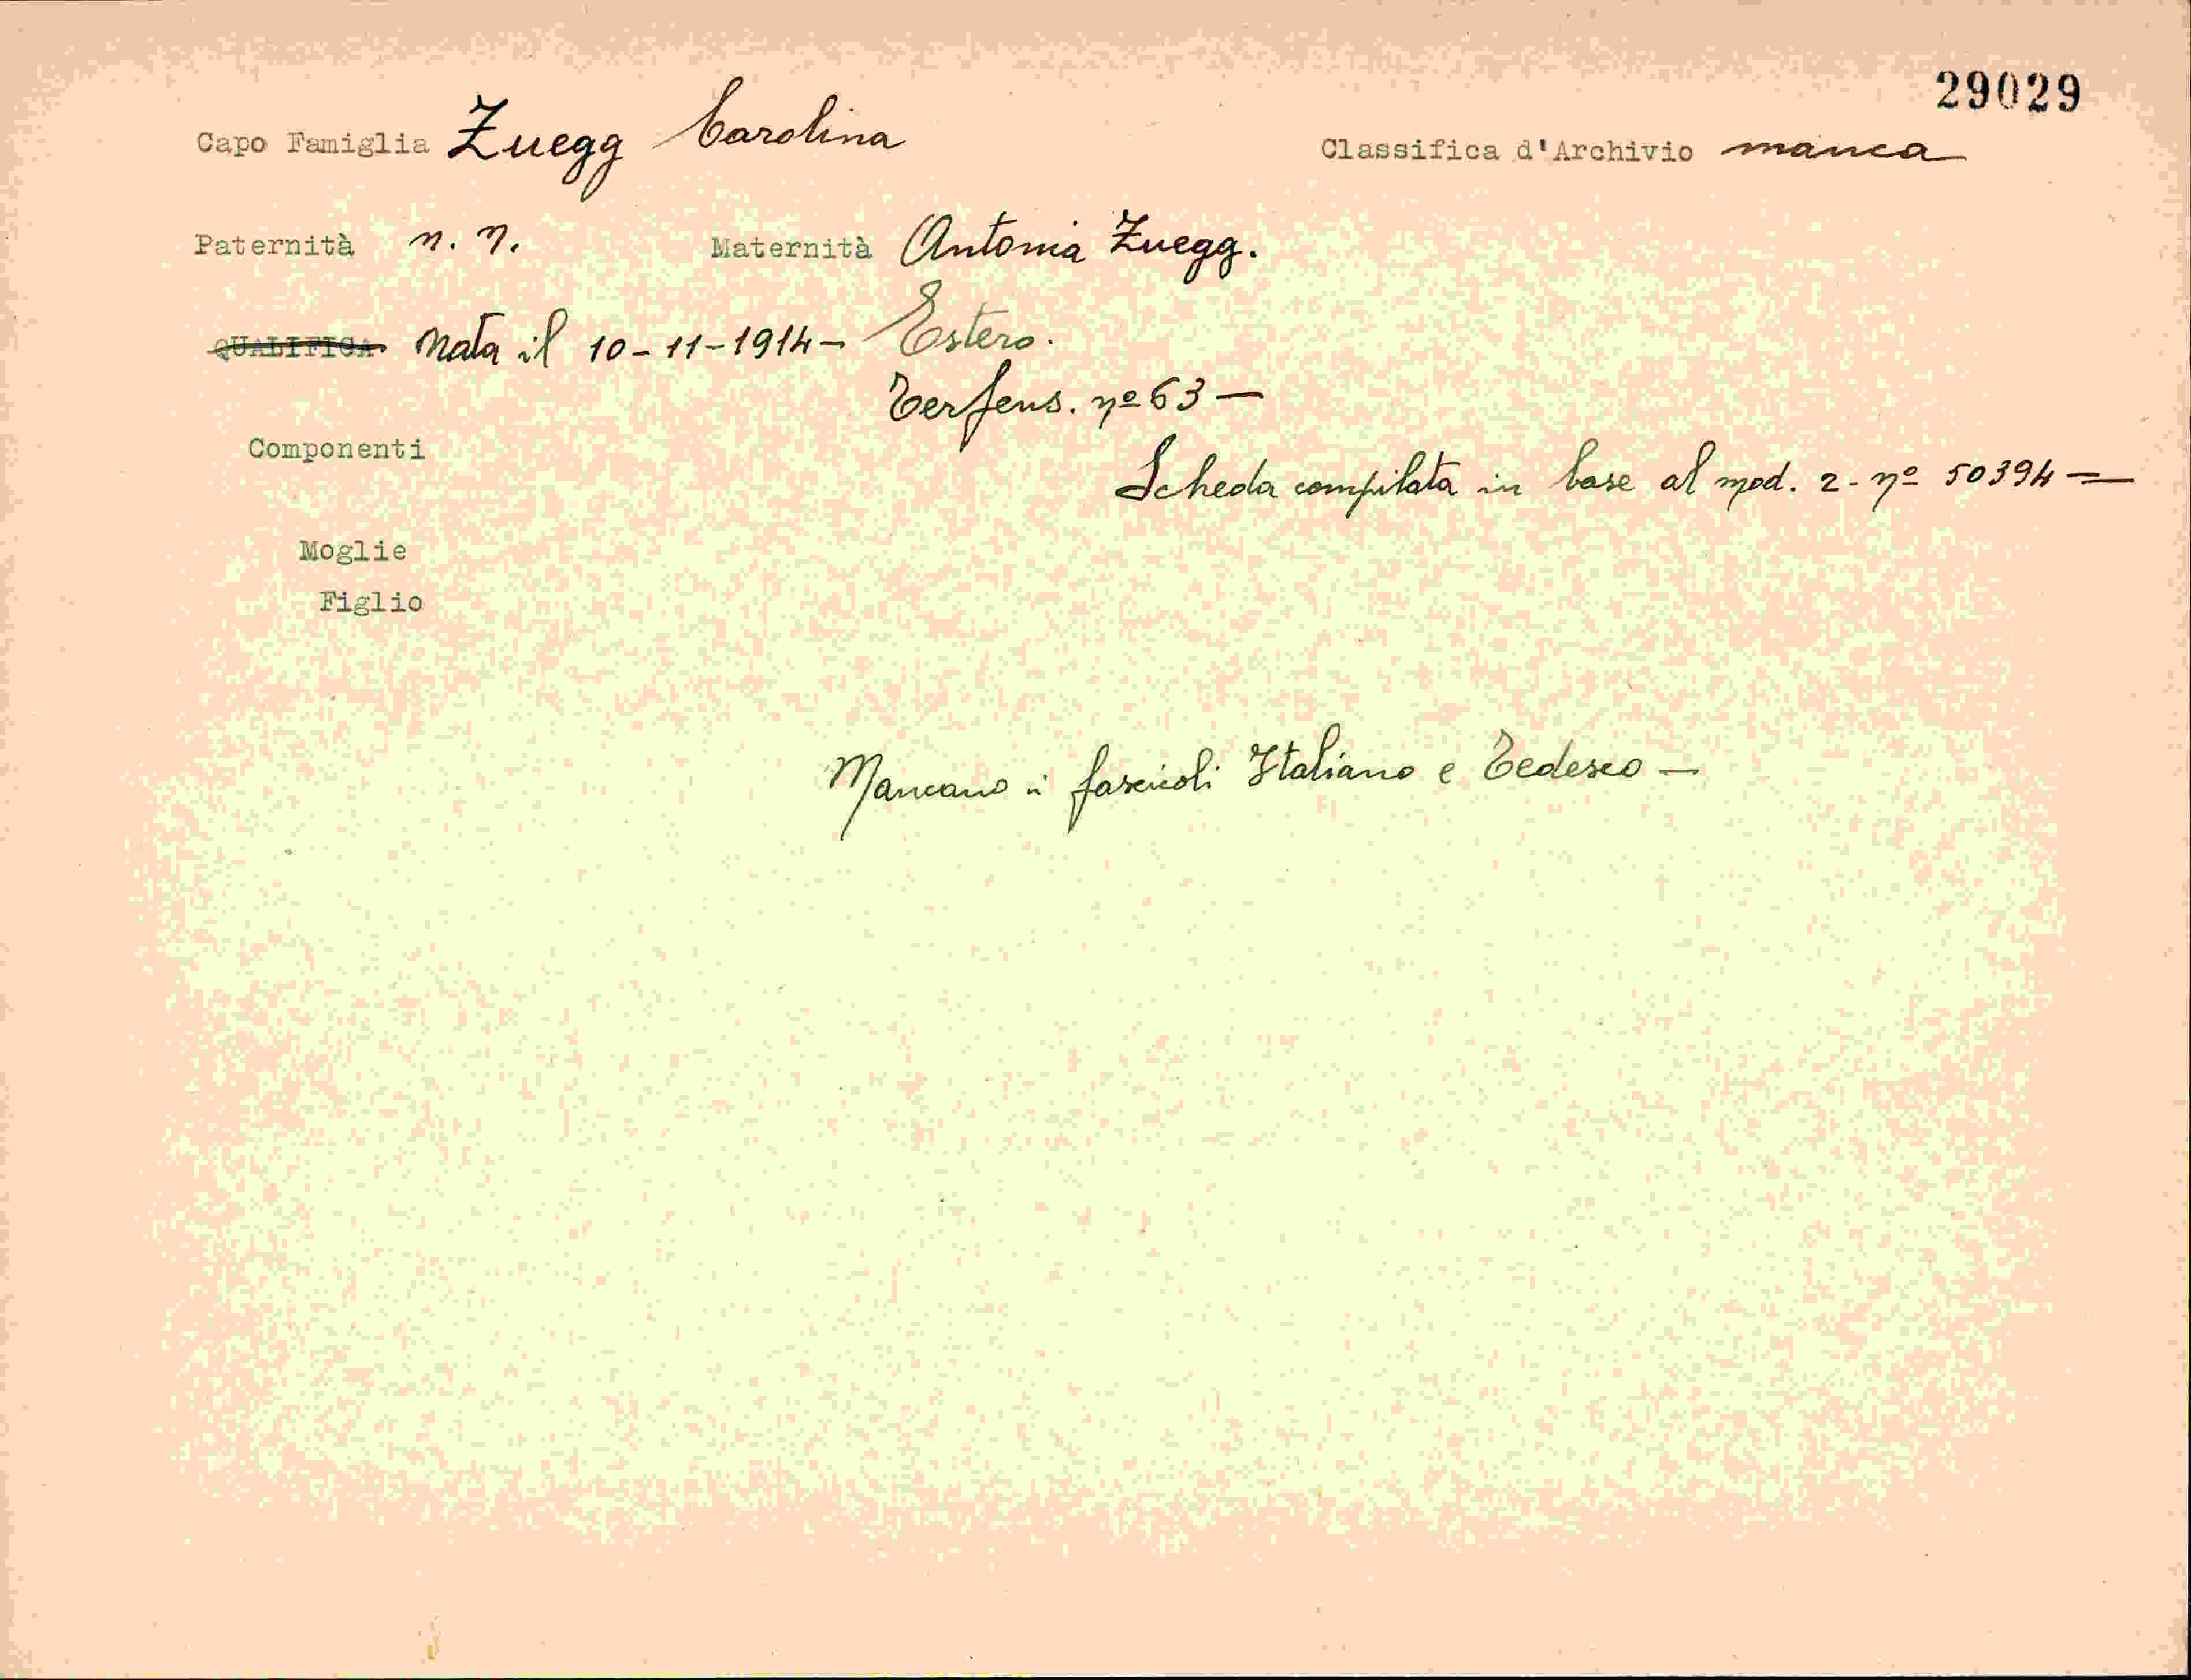 29029
Capo Famiglia Zuegg Carolina Classifica d'Archivio manca
Paternità n. n. Maternità Antonia Zuegg.
QUALIFICA Nata il 10-11-1914- Estero.
Terfens. nº 63 —
Componenti
Scheda compilata in base al mod. 2 - nº 50394 =
Moglie
Figlio
Mancano i fascicoli Italiano e Tedesco —